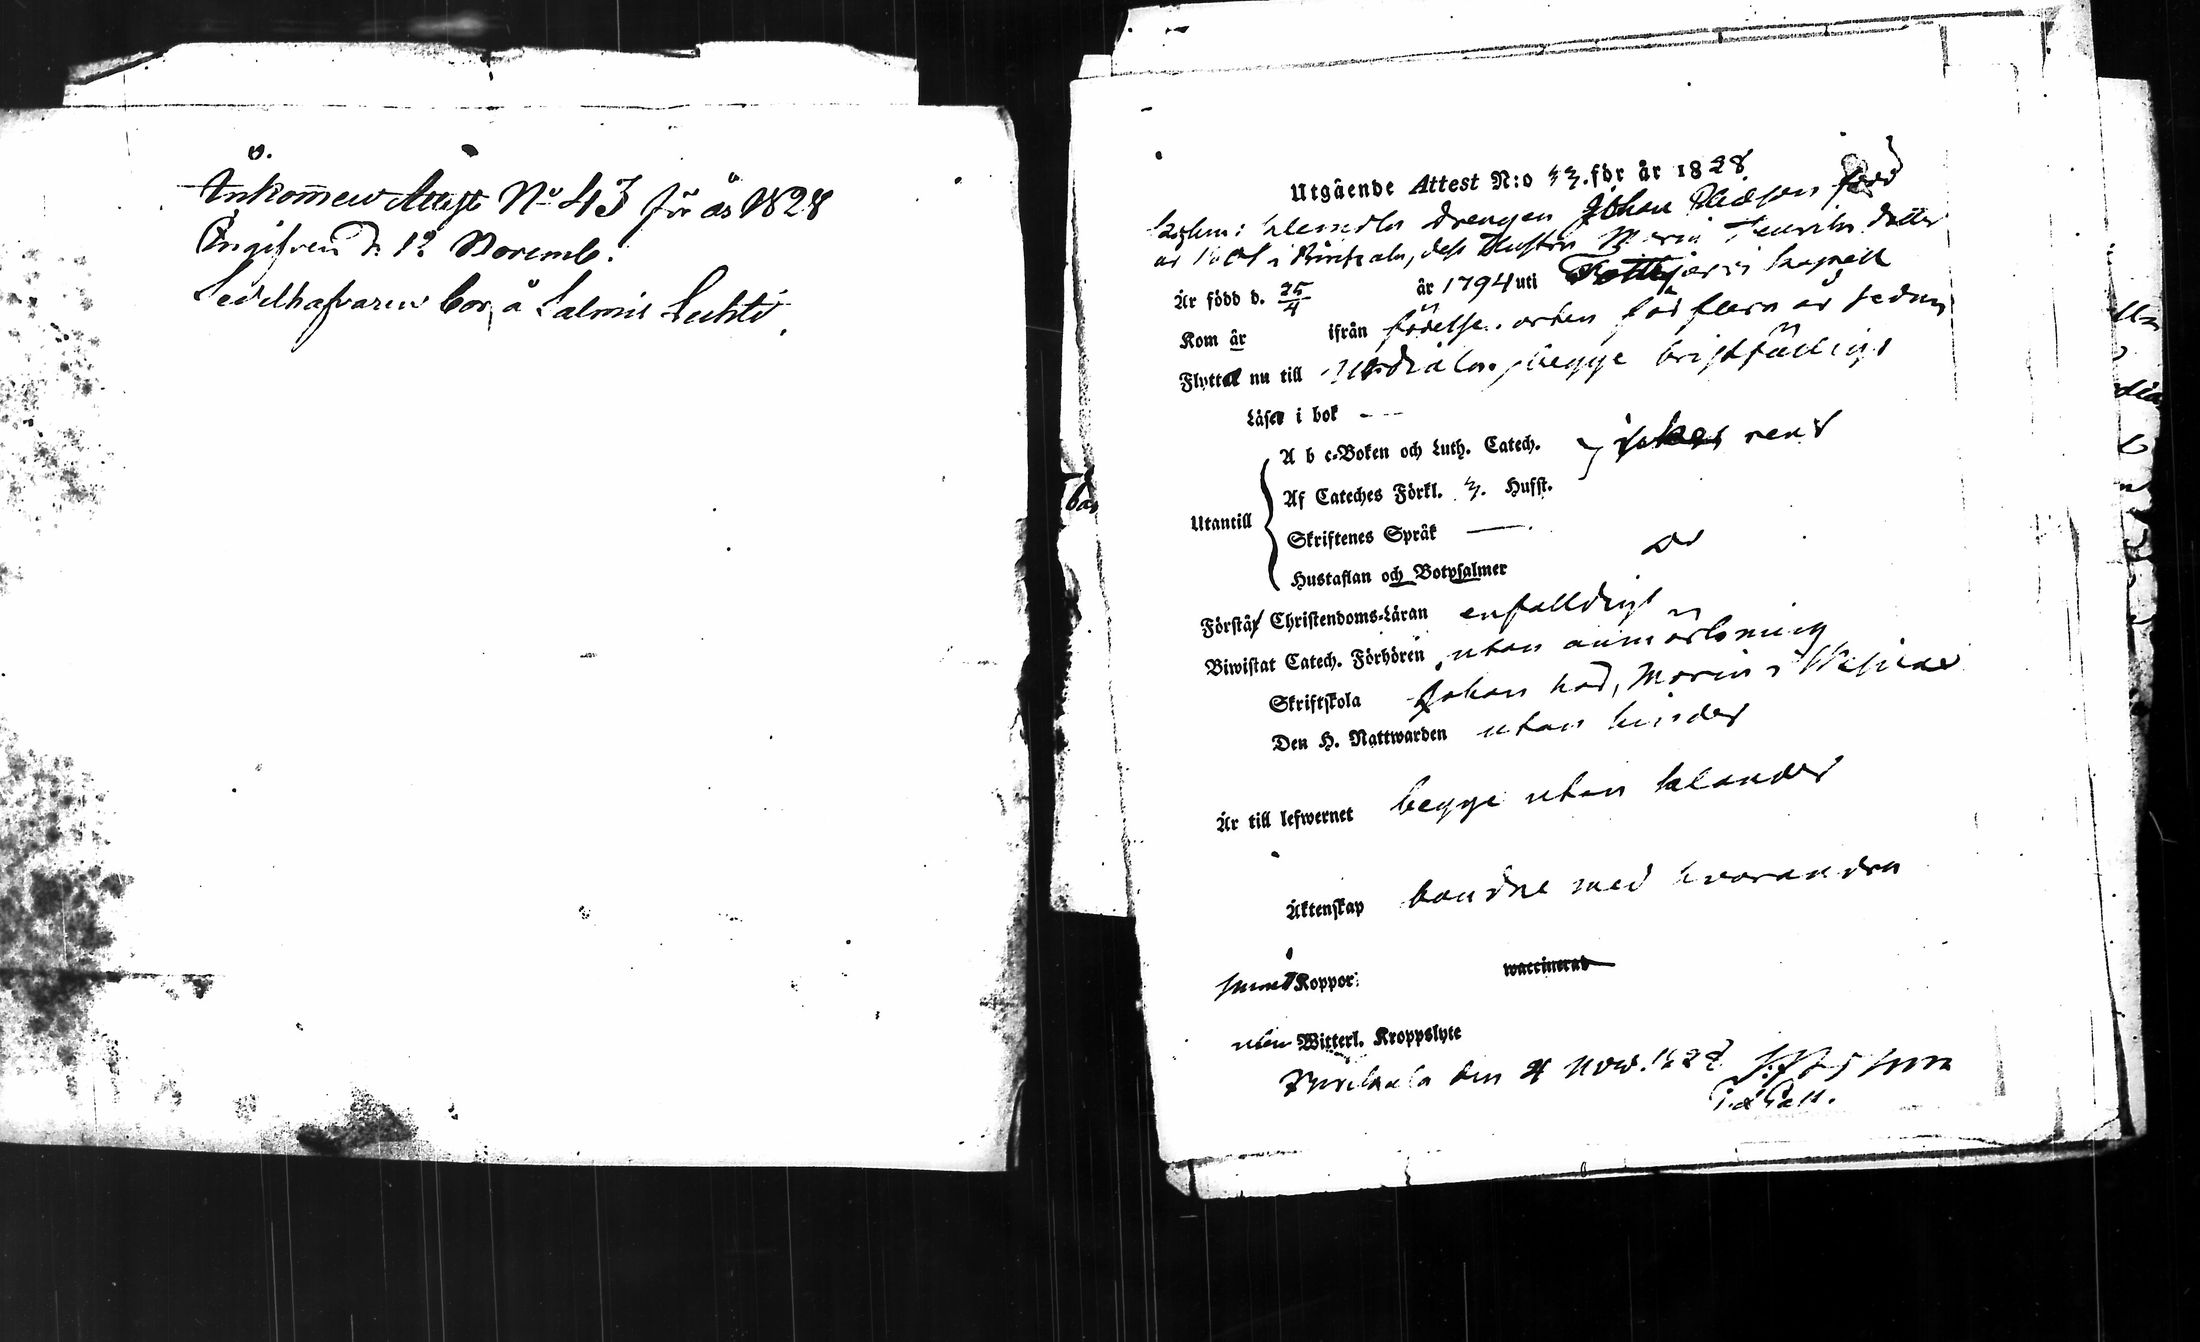 Ankommen Attest No 43 för år 1828
Ingifven d. 12 Novemb.
Sedelhafvaren bor å Salmis Lechti.
Utgående Attest N:o för år 1828
Drengen Johan född
år i dess Hustru Maria Henriks dotter
Är född d. 25/4 år 1794 uti capell
Kom år ifrån födelse orten för flera år sedan
Flyttat nu till begge
Läser i bok - - -
A b c-Boken och Luth. Catech. rent
Af Cateches Förkl. Husst.
Utantill
Skriftenes Språk —
Hustaflan och Botpsalmer
Förstår Christendoms-Läran enfalldigt
Biwistat Catech. Förhören utan anmärkning
Skriftskola Johan här, Maria i
Den H. Nattwarden utan hinder
Är till lefwernet begge utan klander
Äktenskap bundne med hvarandra
Koppor: waccinerad
utan Witterl. Kroppslyte
den 4 Nov. 1828